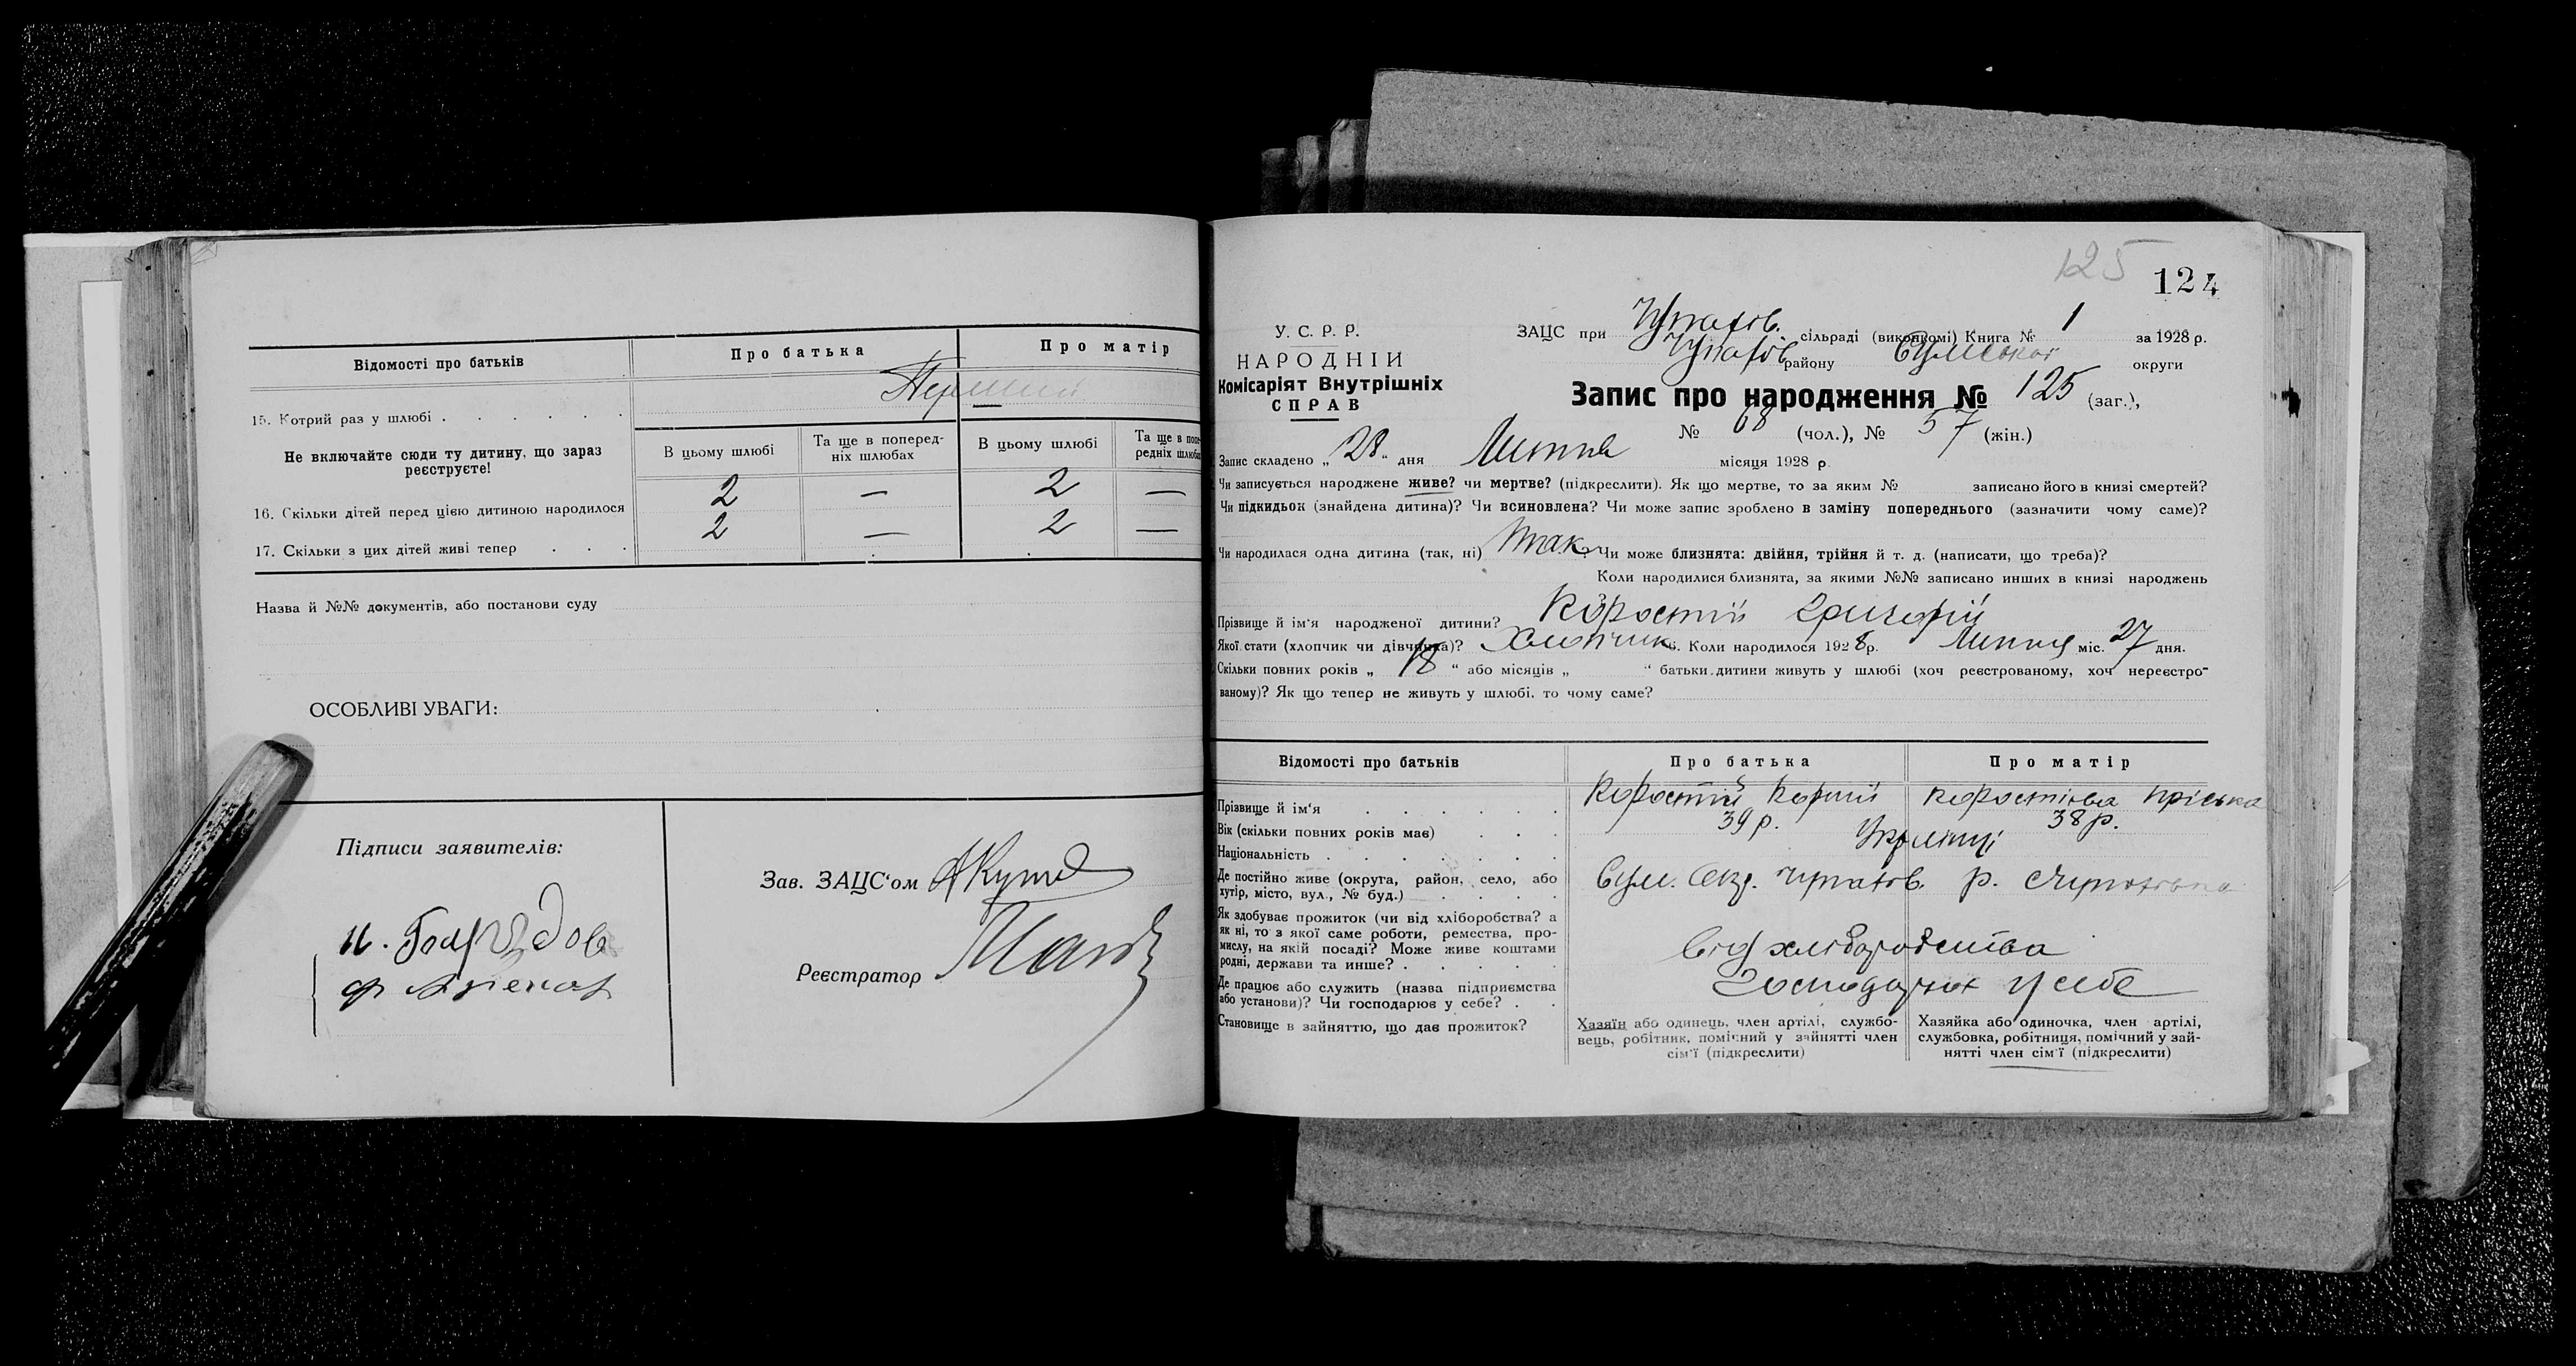 Відомості про батьків
Про батька
Про матір
15. Котрий раз у шлюбі
Перший
Не включайте сюди ту дитину, що зараз реєструєте!
В цьому шлюбі
Та ще в поперед-
ніх шлюбах
В цьому шлюбі
Та ще в попе-
редніх шлюбах
16. Скільки дітей перед цією дитиною народилося 2 — 2 —
17. Скільки з цих дітей живі тепер 2 — 2 —
Назва й №№ документів, або постанови суду
ОСОБЛИВІ УВАГИ:
Підписи заявителів:
Зав. ЗАЦС'ом
Реєстратор
125
124
У. С. Р. Р.
НАРОДНІЙ
Комісаріят Внутрішніх
СПРАВ
ЗАЦС при Чупахів. сільраді (виконкомі) Книга № 1 за 1928 р.
Чупахів району Сумської округи
Запис про народження № 125 (заг.),
№ 68 (чол.), № 57 (жін.)
Запис складено „28" дня Липня місяця 1928 р.
Чи записується народжене живе? чи мертве? (підкреслити). Як що мертве, то за яким № записано його в книзі смертей?
Чи підкидьок (знайдена дитина)? Чи всиновлена? Чи може запис зроблено в заміну попереднього (зазначити чому саме)?
Чи народилася одна дитина (так, ні) так. Чи може близнята: двійня, трійня й т. д. (написати, що треба)?
Коли народилися близнята, за якими №№ записано инших в книзі народжень
Прізвище й ім'я народженої дитини? Коростій Григорій
Якої стати (хлопчик чи дівчинка)? Хлопчик 6. Коли народилося 1928 р. Липня міс. 27 дня.
Скільки повних років „18" або місяців „ " батьки дитини живуть у шлюбі (хоч реєстрованому, хоч нереєстро-
ваному)? Як що тепер не живуть у шлюбі, то чому саме?
Відомості про батьків
Про батька
Про матір
Прізвище й ім'я Коростій Корній Коростієва Пріська
Вік (скільки повних років має) 39 р. 38 р.
Національність Українці
Де постійно живе (округа, район, село, або
хутір, місто, вул., № буд.)
Сум. Окр. Чупахів. р. с.Чупахівка
Як здобуває прожиток (чи від хліборобства? а
як ні, то з якої саме роботи, ремества, про-
мислу, на якій посаді? Може живе коштами
родні, держави та инше?
Від хліборобства
Де працює або служить (назва підприємства
або установи)? Чи господарює у себе?
Господарюют у себе
Становище в зайняттю, що дає прожиток?
Хазяїн або одинець, член артілі, службо-
вець, робітник, помічний у зайнятті член
сім'ї (підкреслити)
Хазяйка або одиночка, член артілі,
службовка, робітниця, помічний у зай-
нятті член сім'ї (підкреслити)